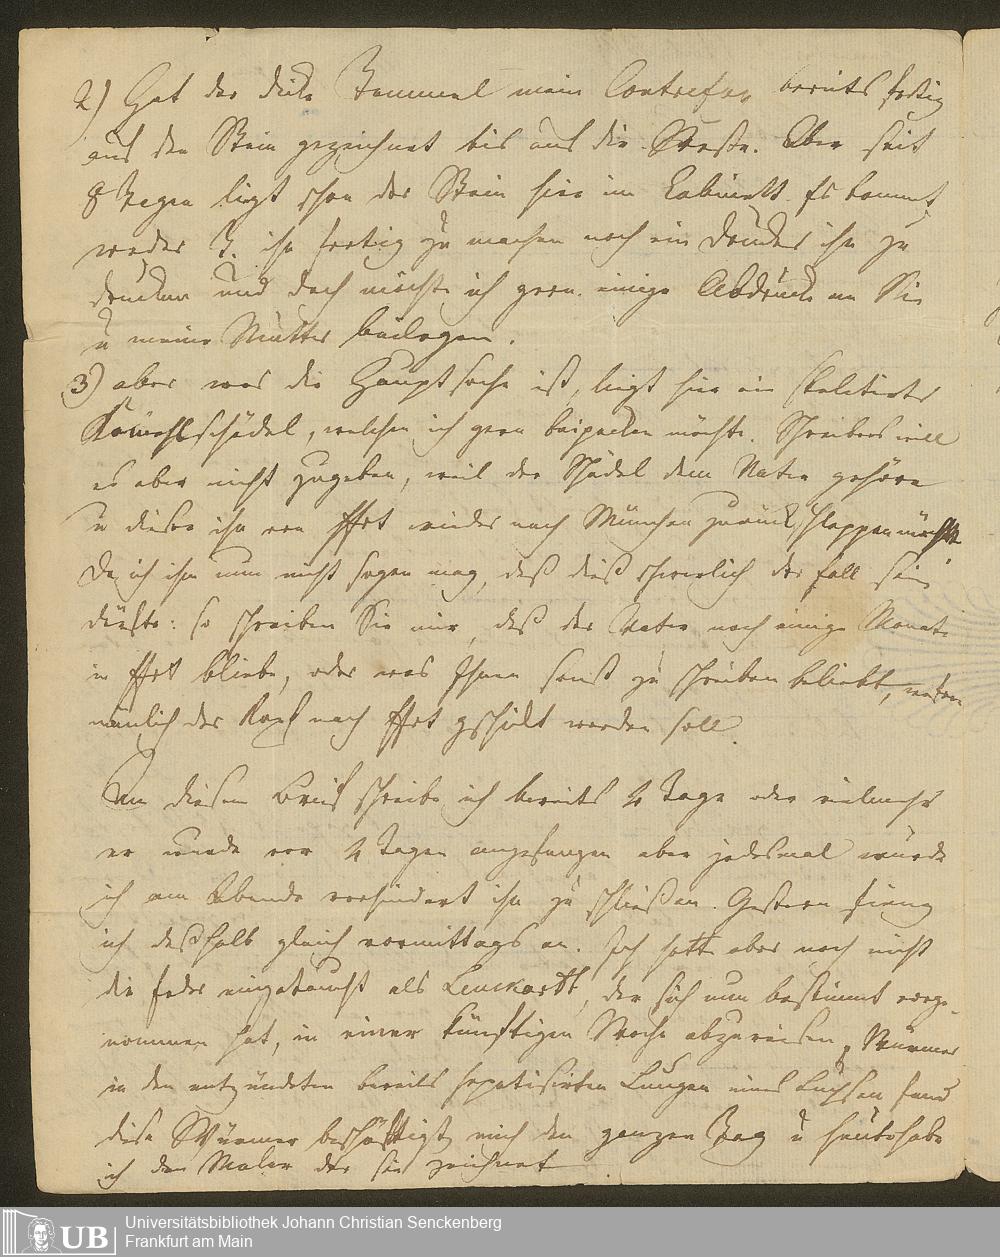 2) Hat der dicke Bommel mein Contrefey bereits fertig
auf den Stein gezeichnet bis auf die Weste. Aber seit
8 Tagen liegt schon der Stein hier im Cabinett. Es kommt
weder B. ihn fertig zu machen noch ein Drucker ihn zu
drucken und doch möchte ich gern einige Abdrücke an Sie
u meine Mutter beilegen.
3) aber was die Hauptsache ist, liegt hier ein skeletirter
schädel, welchen ich gern beipacken möchte. Schreibers will
es aber nicht zugeben, weil der Schädel dem Natter gehöre
u dieser ihn von Ffrt wieder nach München zurück schleppen müßte
Da ich ihm nun nicht sagen mag, daß dieß schwerlich der Fall sein
dürfte: so schreiben Sie mir, daß der Natter noch einige Monate
in Ffrt bliebe, oder was Ihnen sonst zu schreiben beliebt, wofern
nämlich der Kopf nach Ffrt geschickt werden soll.
An diesem Brief schreibe ich bereits 4 Tage oder vielmehr
er wurde vor 4 Tagen angefangen aber jedesmal wurde
ich am Abende verhindert ihn zu schließen. Gestern fieng
ich deßhalb gleich vormittags an. Ich hatte aber noch nicht
die Feder eingetaucht als Leuckartt, der sich nun bestimmt vorge-
nommen hat, in einer künftigen Woche abzureisen, Würmer
in den entzündeten bereits hepatisirten Lungen eines Luchsen fand
diese Würmer beschäftigt mich den ganzen Tag u heute habe
ich den Maler der sie zeichnet.
Universitätsbibliothek Johann Christian Senckenberg
Frankfurt am Main
UB